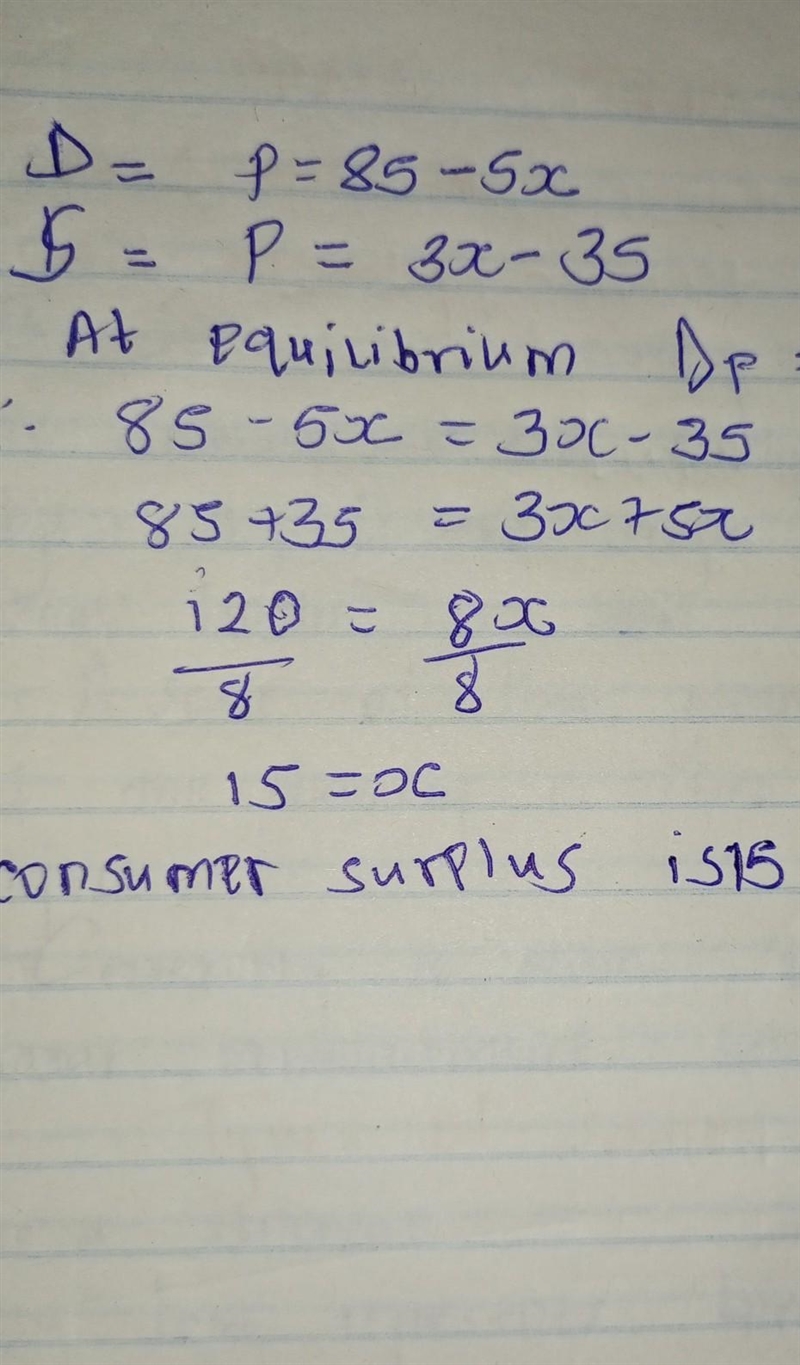 D = P = 85 - 5x
S = P = 3x - 35
At equilibrium Dp =
∴ 85 - 5x = 3x - 35
85 + 35 = 3x + 5x
120 = 8x
8 8
15 = x
consumer surplus is 15